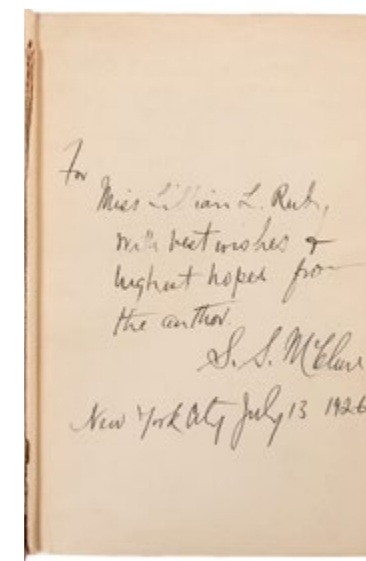 For
Miss Lillian L. Ruby,
with best wishes &
highest hopes from
the author.
S. S. McClure
New York City July 13 1926